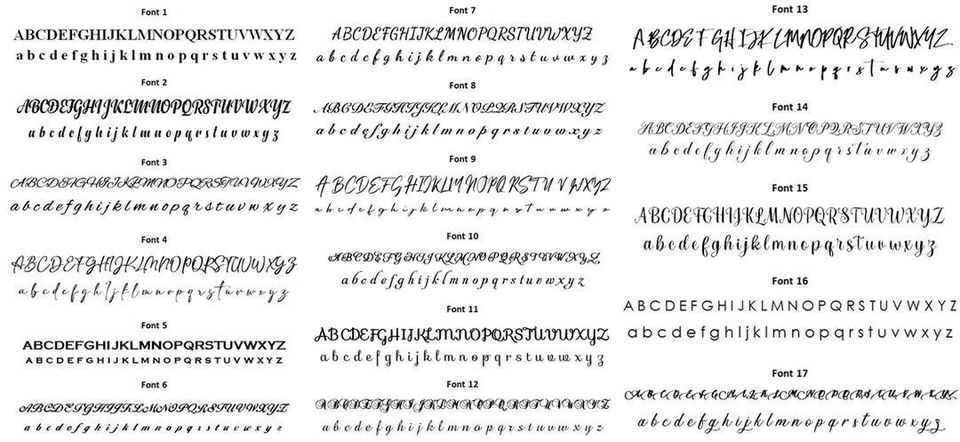 Font 1
ABCDEFGHIJKLMNOPQRSTUVWXYZ
a b c d e f g h i j k l m n o p q r s t u v w x y z
Font 2
ABCDEFGHIJKLMNOPQRSTUVWXYZ
a b c d e f g h i j k l m n o p q r s t u v w x y z
Font 3
ABCDEFGHIJKLMNOPQRSTUVWXYZ
a b c d e f g h i j k l m n o p q r s t u v w x y z
Font 4
ABCDEFGHIJKLMNOPQRSTUVWXYZ
a b c d e f g h i j k l m n o p q r s t u v w x y z
Font 5
ABCDEFGHIJKLMNOPQRSTUVWXYZ
A B C D E F G H I J K L M N O P Q R S T U V W X Y Z
Font 6
ABCDEFGHIJKLMNOPQRSTUVWXYZ
a b c d e f g h i j k l m n o p q r s t u v w x y z
Font 7
ABCDEFGHIJKLMNOPQRSTUVWXYZ
a b c d e f g h i j k l m n o p q r s t u v w x y z
Font 8
ABCDEFGHIJKLMNOPQRSTUVWXYZ
a b c d e f g h i j k l m n o p q r s t u v w x y z
Font 9
ABCDEFGHIJKLMNOPQRSTUVWXYZ
a b c d e f g h i j k l m n o p q r s t u v w x y z
Font 10
ABCDEFGHIJKLMNOPQRSTUVWXYZ
a b c d e f g h i j k l m n o p q r s t u v w x y z
Font 11
ABCDEFGHIJKLMNOPQRSTUVWXYZ
a b c d e f g h i j k l m n o p q r s t u v w x y z
Font 12
ABCDEFGHIJKLMNOPQRSTUVWXYZ
a b c d e f g h i j k l m n o p q r s t u v w x y z
Font 13
ABCDEFGHIJKLMNOPQRSTUVWXYZ
a b c d e f g h i j k l m n o p q r s t u v w x y z
Font 14
ABCDEFGHIJKLMNOPQRSTUVWXYZ
a b c d e f g h i j k l m n o p q r s t u v w x y z
Font 15
ABCDEFGHIJKLMNOPQRSTUVWXYZ
a b c d e f g h i j k l m n o p q r s t u v w x y z
Font 16
ABCDEFGHIJKLMNOPQRSTUVWXYZ
a b c d e f g h i j k l m n o p q r s t u v w x y z
Font 17
ABCDEFGHIJKLMNOPQRSTUVWXYZ
a b c d e f g h i j k l m n o p q r s t u v w x y z